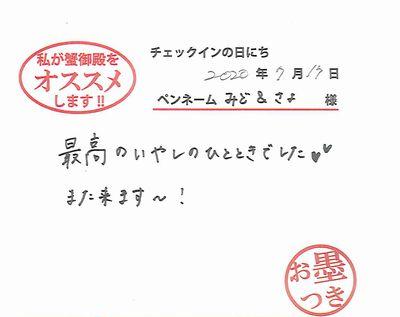 私が蟹御殿を
オススメ
します!!
チェックインの日にち
2020年9月19日
ペンネーム みど&さよ 様
最高のいやしのひとときでした♥♥
また来ます〜!
お墨
つき